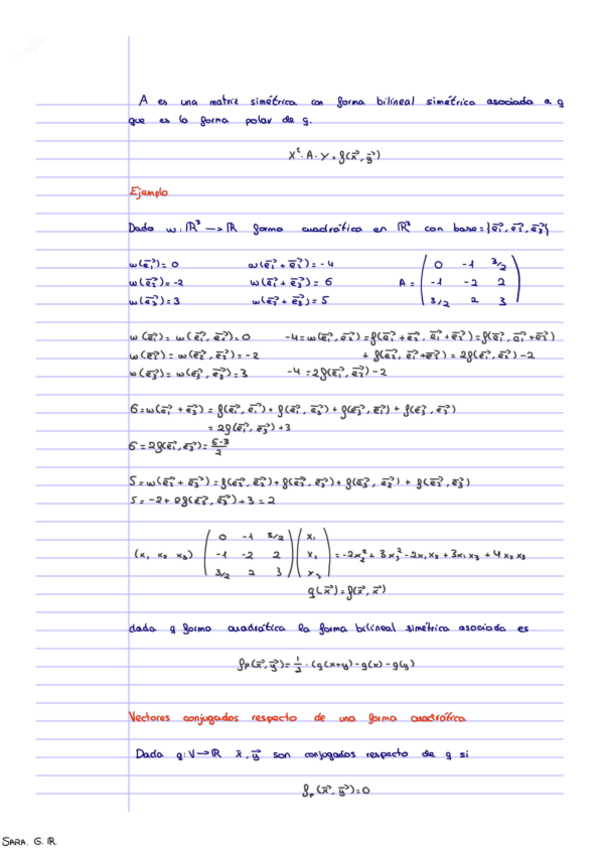 A es una matriz simétrica con forma bilineal simétrica asociada a q
que es la forma polar de q.
Xᵗ · A · Y = f(x⃗, y⃗)
Ejemplo
Dada w: ℝ³ → ℝ forma cuadrática en ℝ³ con base = {e₁⃗, e₂⃗, e₃⃗}
w(e₁⃗) = 0 w(e₁⃗ + e₂⃗) = -4 0 -1 3/2
w(e₂⃗) = -2 w(e₁⃗ + e₃⃗) = 6 A = -1 -2 2
w(e₃⃗) = 3 w(e₂⃗ + e₃⃗) = 5 3/2 2 3
w(e₁⃗) = w(e₁⃗, e₁⃗) = 0 -4 = w(e₁⃗, e₂⃗) = f(e₁⃗ + e₂⃗, e₁⃗ + e₂⃗) = f(e₁⃗, e₁⃗ + e₂⃗)
w(e₂⃗) = w(e₂⃗, e₂⃗) = -2 + f(e₂⃗, e₁⃗ + e₂⃗) = 2f(e₁⃗, e₂⃗) - 2
w(e₃⃗) = w(e₃⃗, e₃⃗) = 3 -4 = 2f(e₁⃗, e₂⃗) - 2
6 = w(e₁⃗ + e₃⃗) = f(e₁⃗, e₁⃗) + f(e₁⃗, e₃⃗) + f(e₃⃗, e₁⃗) + f(e₃⃗, e₃⃗)
= 2f(e₁⃗, e₃⃗) + 3
6 = 2f(e₁⃗, e₃⃗) = 6-3/2
5 = w(e₂⃗ + e₃⃗) = f(e₂⃗, e₂⃗) + f(e₂⃗, e₃⃗) + f(e₃⃗, e₂⃗) + f(e₃⃗, e₃⃗)
5 = -2 + 2f(e₂⃗, e₃⃗) + 3 = 2
0 -1 3/2 x₁
(x₁ x₂ x₃) -1 -2 2 x₂ = -2x₂² + 3x₃² - 2x₁x₂ + 3x₁x₃ + 4x₂x₃
3/2 2 3 x₃
q(x⃗) = f(x⃗, x⃗)
dada q forma cuadrática la forma bilineal simétrica asociada es
fₚ(x⃗, y⃗) = 1/2 · (q(x+y) - q(x) - q(y)
Vectores conjugados respecto de una forma cuadrática
Dada q: V → ℝ x⃗, y⃗ son conjugados respecto de q si
fₚ(x⃗, y⃗) = 0
SARA. G. R.